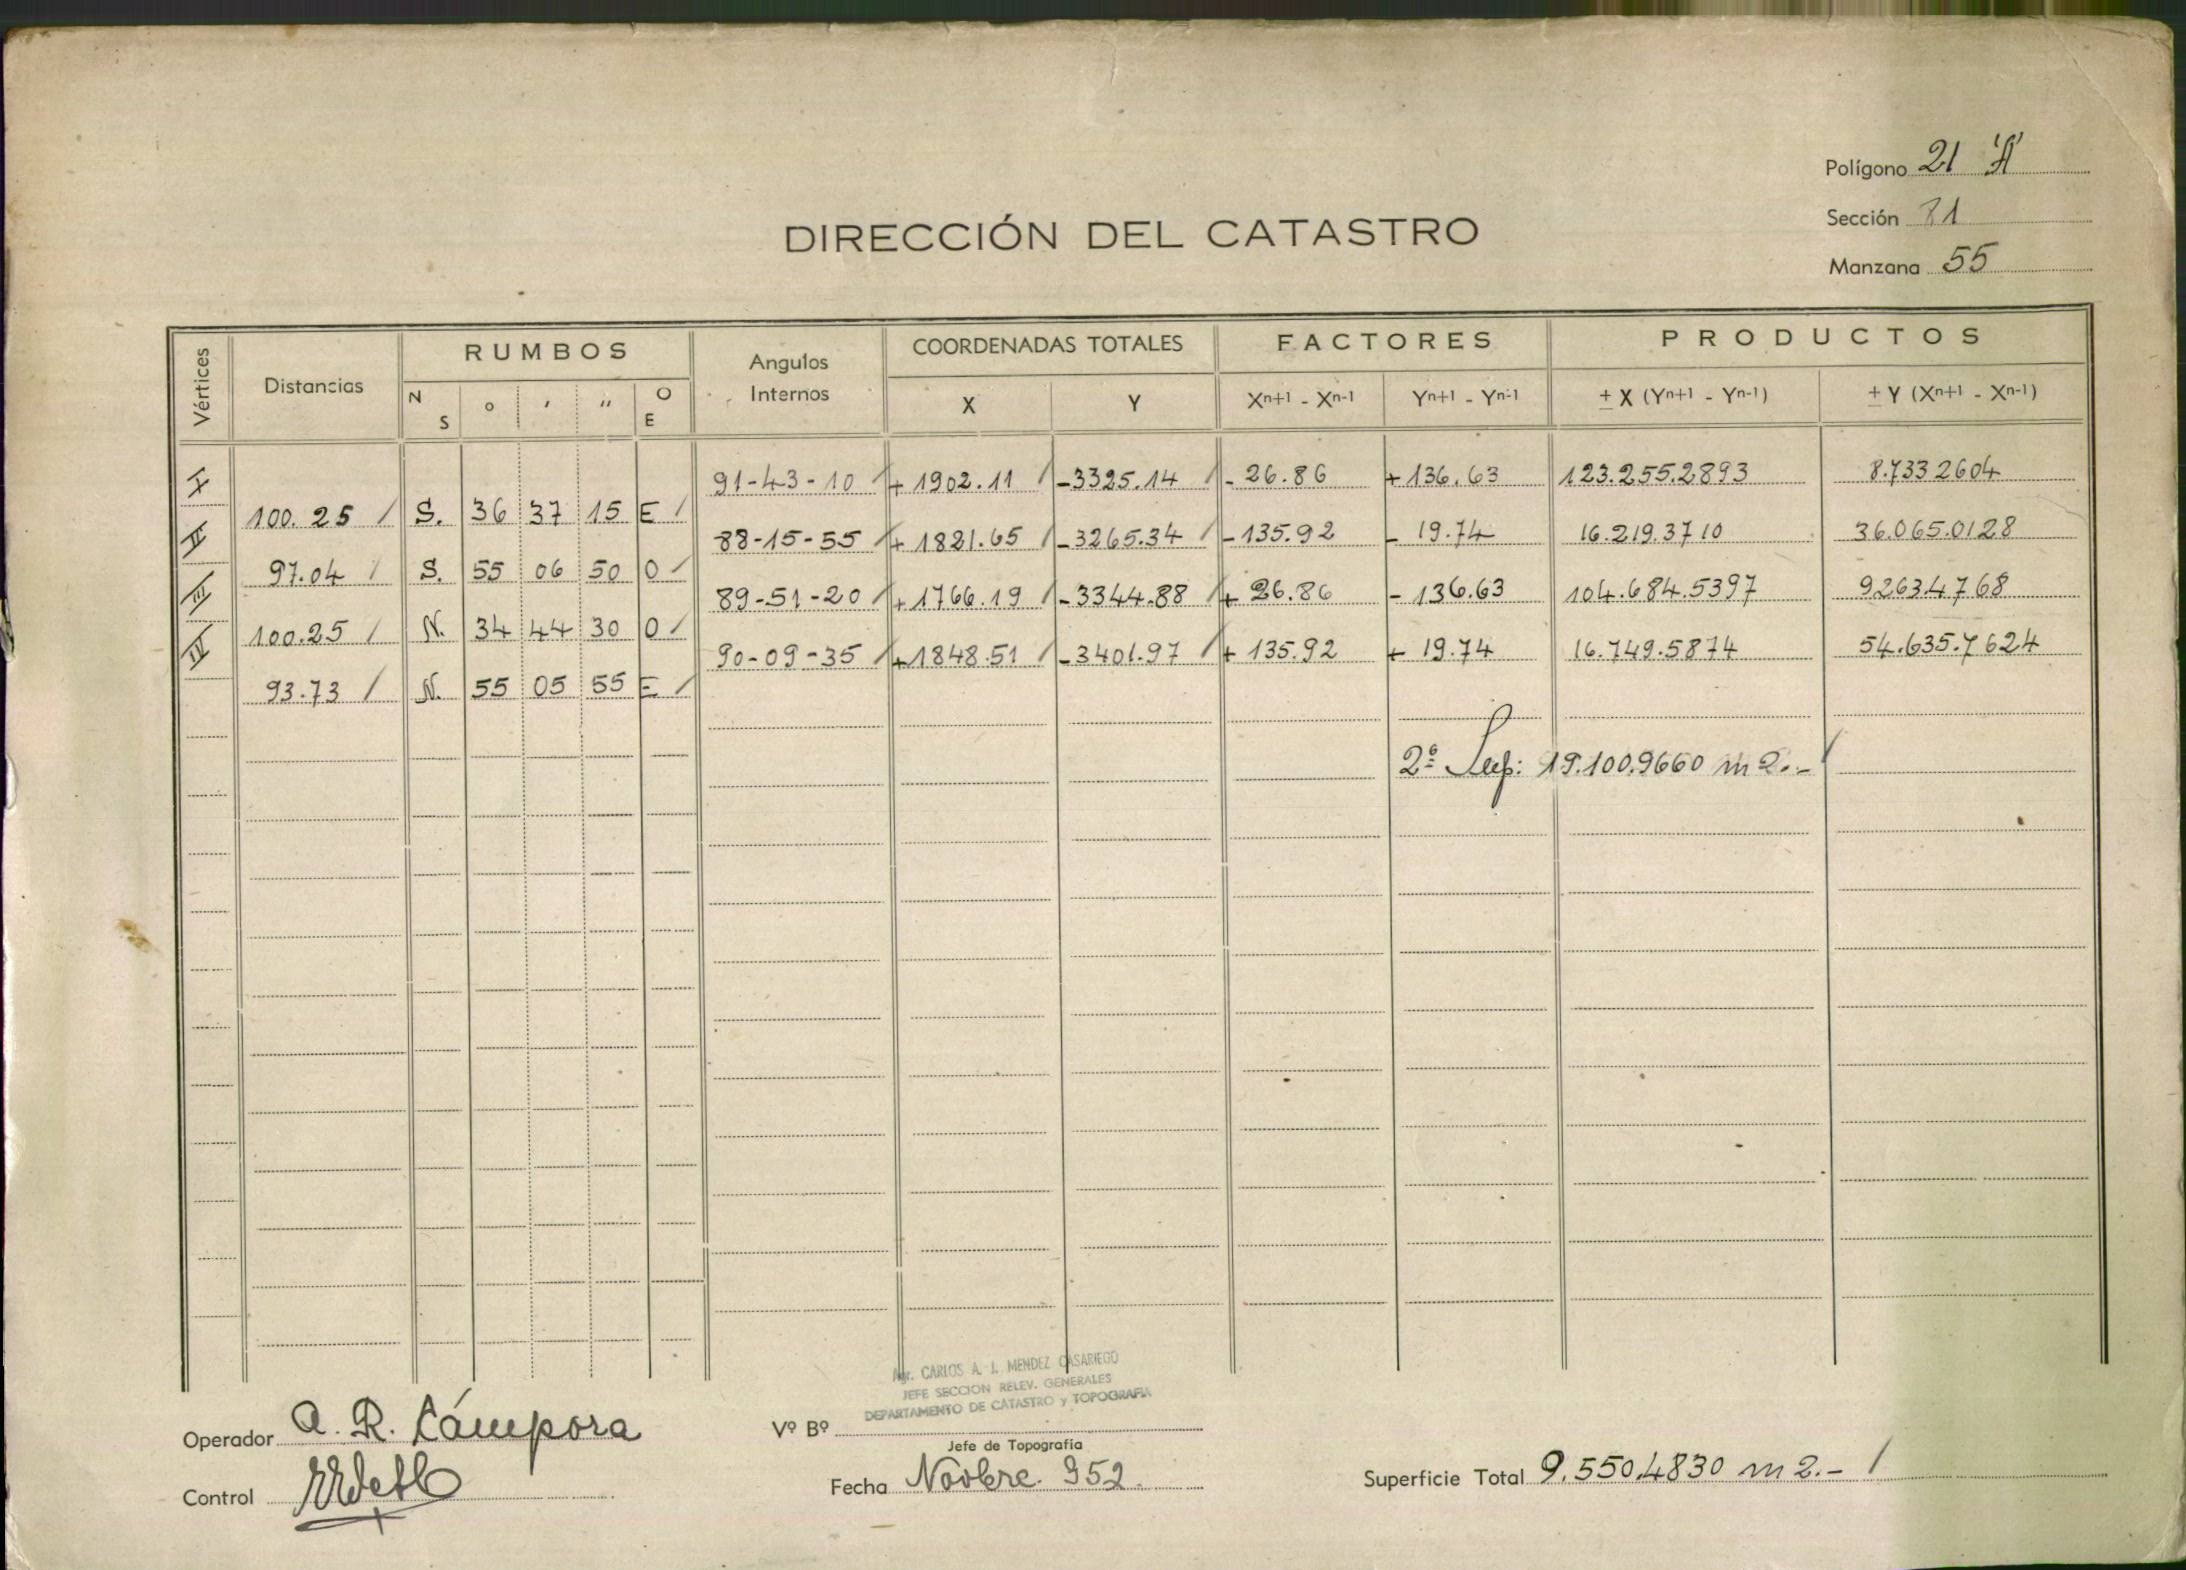 Polígono 21 'A'
Sección 81
Manzana 55
DIRECCIÓN DEL CATASTRO
Vértices Distancias RUMBOS Angulos Internos COORDENADAS TOTALES FACTORES PRODUCTOS
N S o ' '' O E X Y Xn+1 - Xn-1 Yn+1 - Yn-1 ± X (Yn+1 - Yn-1) ± Y (Xn+1 - Xn-1)
I 91-43-10 + 1902.11 -3325.14 - 26.86 +136.63 123.255.2893 8.733.2604
100.25 S. 36 37 15 E
II 88-15-55 + 1821.65 -3265.34 -135.92 - 19.74 16.219.3710 36.065.0128
97.04 S. 55 06 50 O
III 89-51-20 +1766.19 -3344.88 + 26.86 - 136.63 104.684.5397 9263.4768
100.25 N. 34 44 30 O
IV 90-09-35 +1848.51 -3401.97 + 135.92 + 19.74 16.749.5874 54.635.7624
93.73 N. 55 05 55 E
2ª Sup: 19.100.9660 m2.-
Agr. CARLOS A. J. MENDEZ CASARIEGO
JEFE SECCION RELEV. GENERALES
DEPARTAMENTO DE CATASTRO y TOPOGRAFIA
Operador A. R. Cámpora
Vº Bº
Jefe de Topografía
Control
Fecha Novbre. 952.
Superficie Total 9.550.4830 m2.-